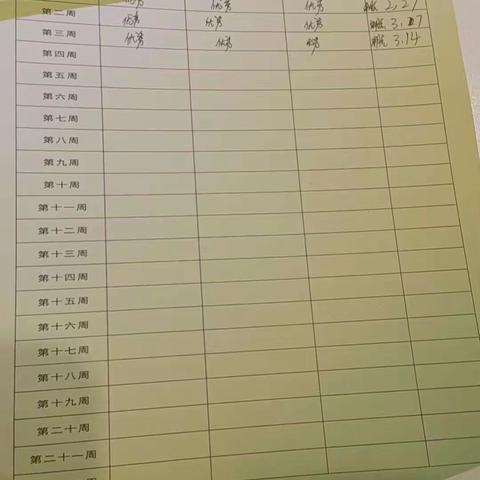 优秀 优秀 优秀 2.27
第二周 优秀 优秀 优秀
第三周 优秀 优秀 优秀 3.14
第四周
第五周
第六周
第七周
第八周
第九周
第十周
第十一周
第十二周
第十三周
第十四周
第十五周
第十六周
第十七周
第十八周
第十九周
第二十周
第二十一周